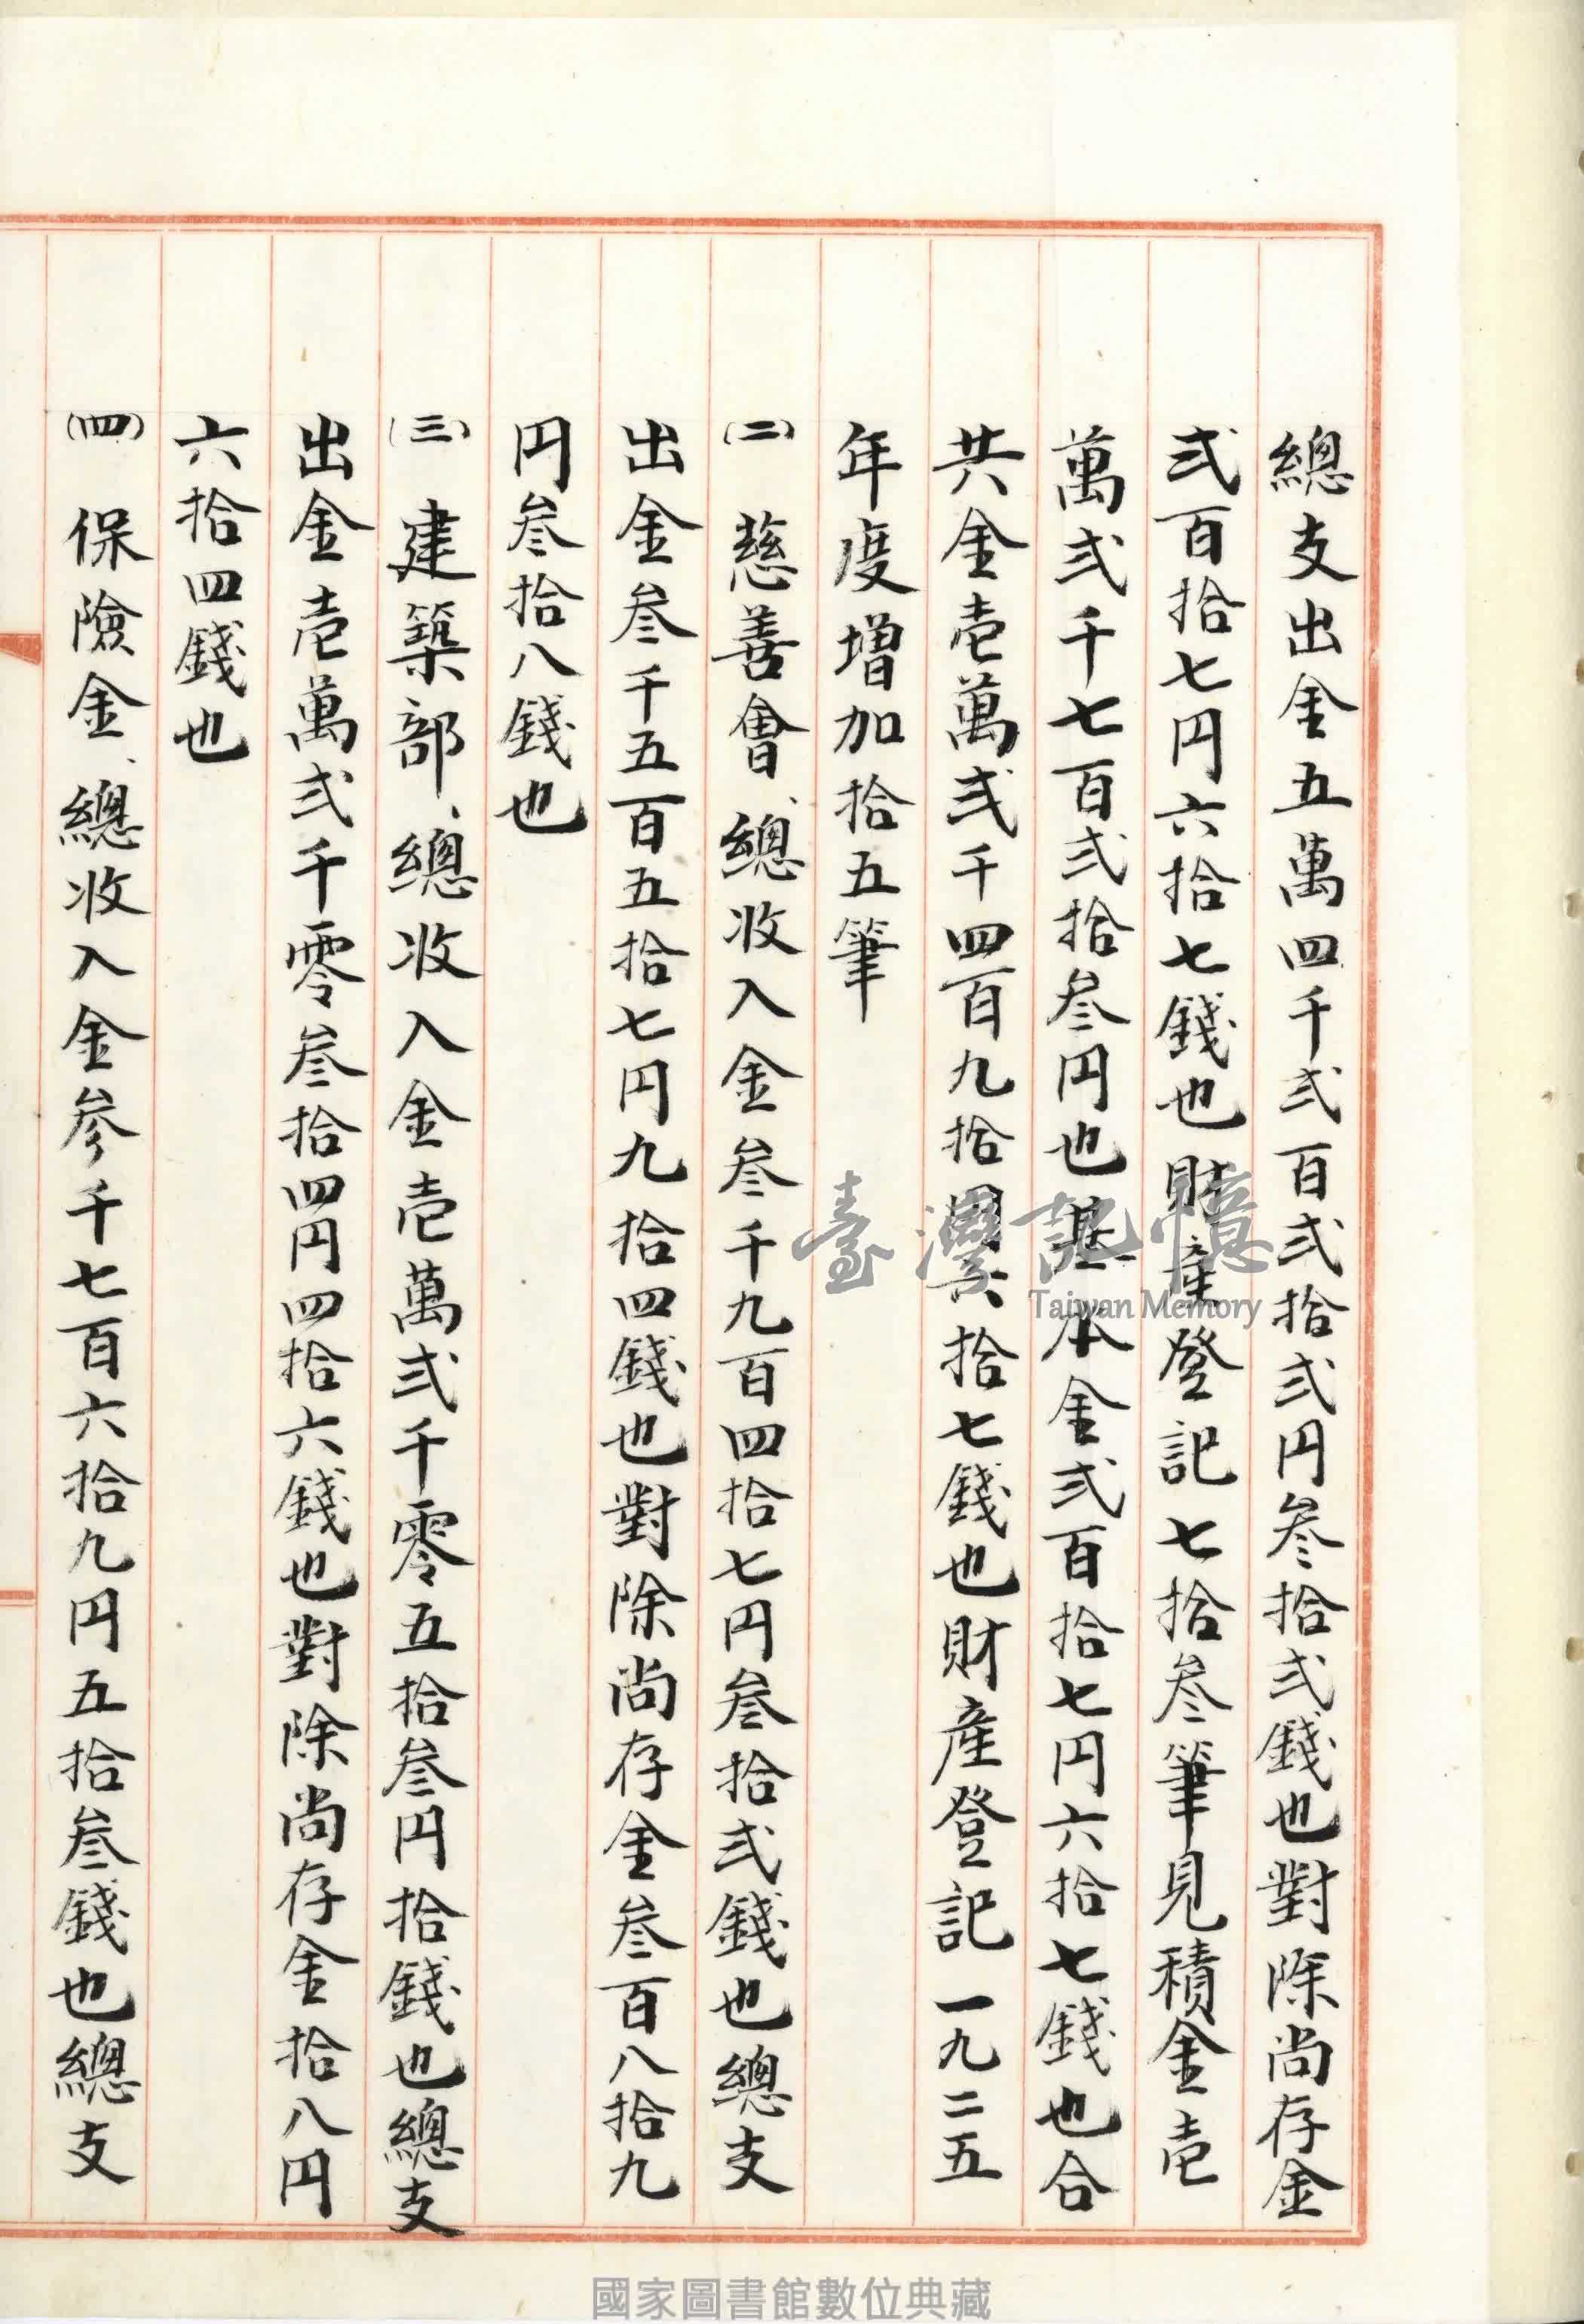 總支出金五萬四千弍百弍拾弍円叁拾弍錢也對除尚存金
弍百拾七円六拾七錢也財產登記七拾叁筆見積金壱
萬弍千七百弍拾叁円也基本金弍百拾七円六拾七錢也合
共金壱萬弍千四百九拾円六拾七錢也財產登記一九二五
年度增加拾五筆
(二) 慈善會、總收入金叁千九百四拾七円叁拾弍錢也總支
出金叁千五百五拾七円九拾四錢也對除尚存金叁百八拾九
円叁拾八錢也
(三) 建築部、總收入金壱萬弍千零五拾叁円拾錢也總支
出金壱萬弍千零叁拾四円四拾六錢也對除尚存金拾八円
六拾四錢也
(四) 保險金、總收入金参千七百六拾九円五拾叁錢也總支
臺灣記憶
Taiwan Memory
國家圖書館數位典藏